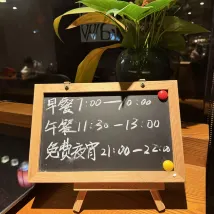 早餐7:00—10:00
午餐11:30-13:00
免费夜宵21:00—22:00